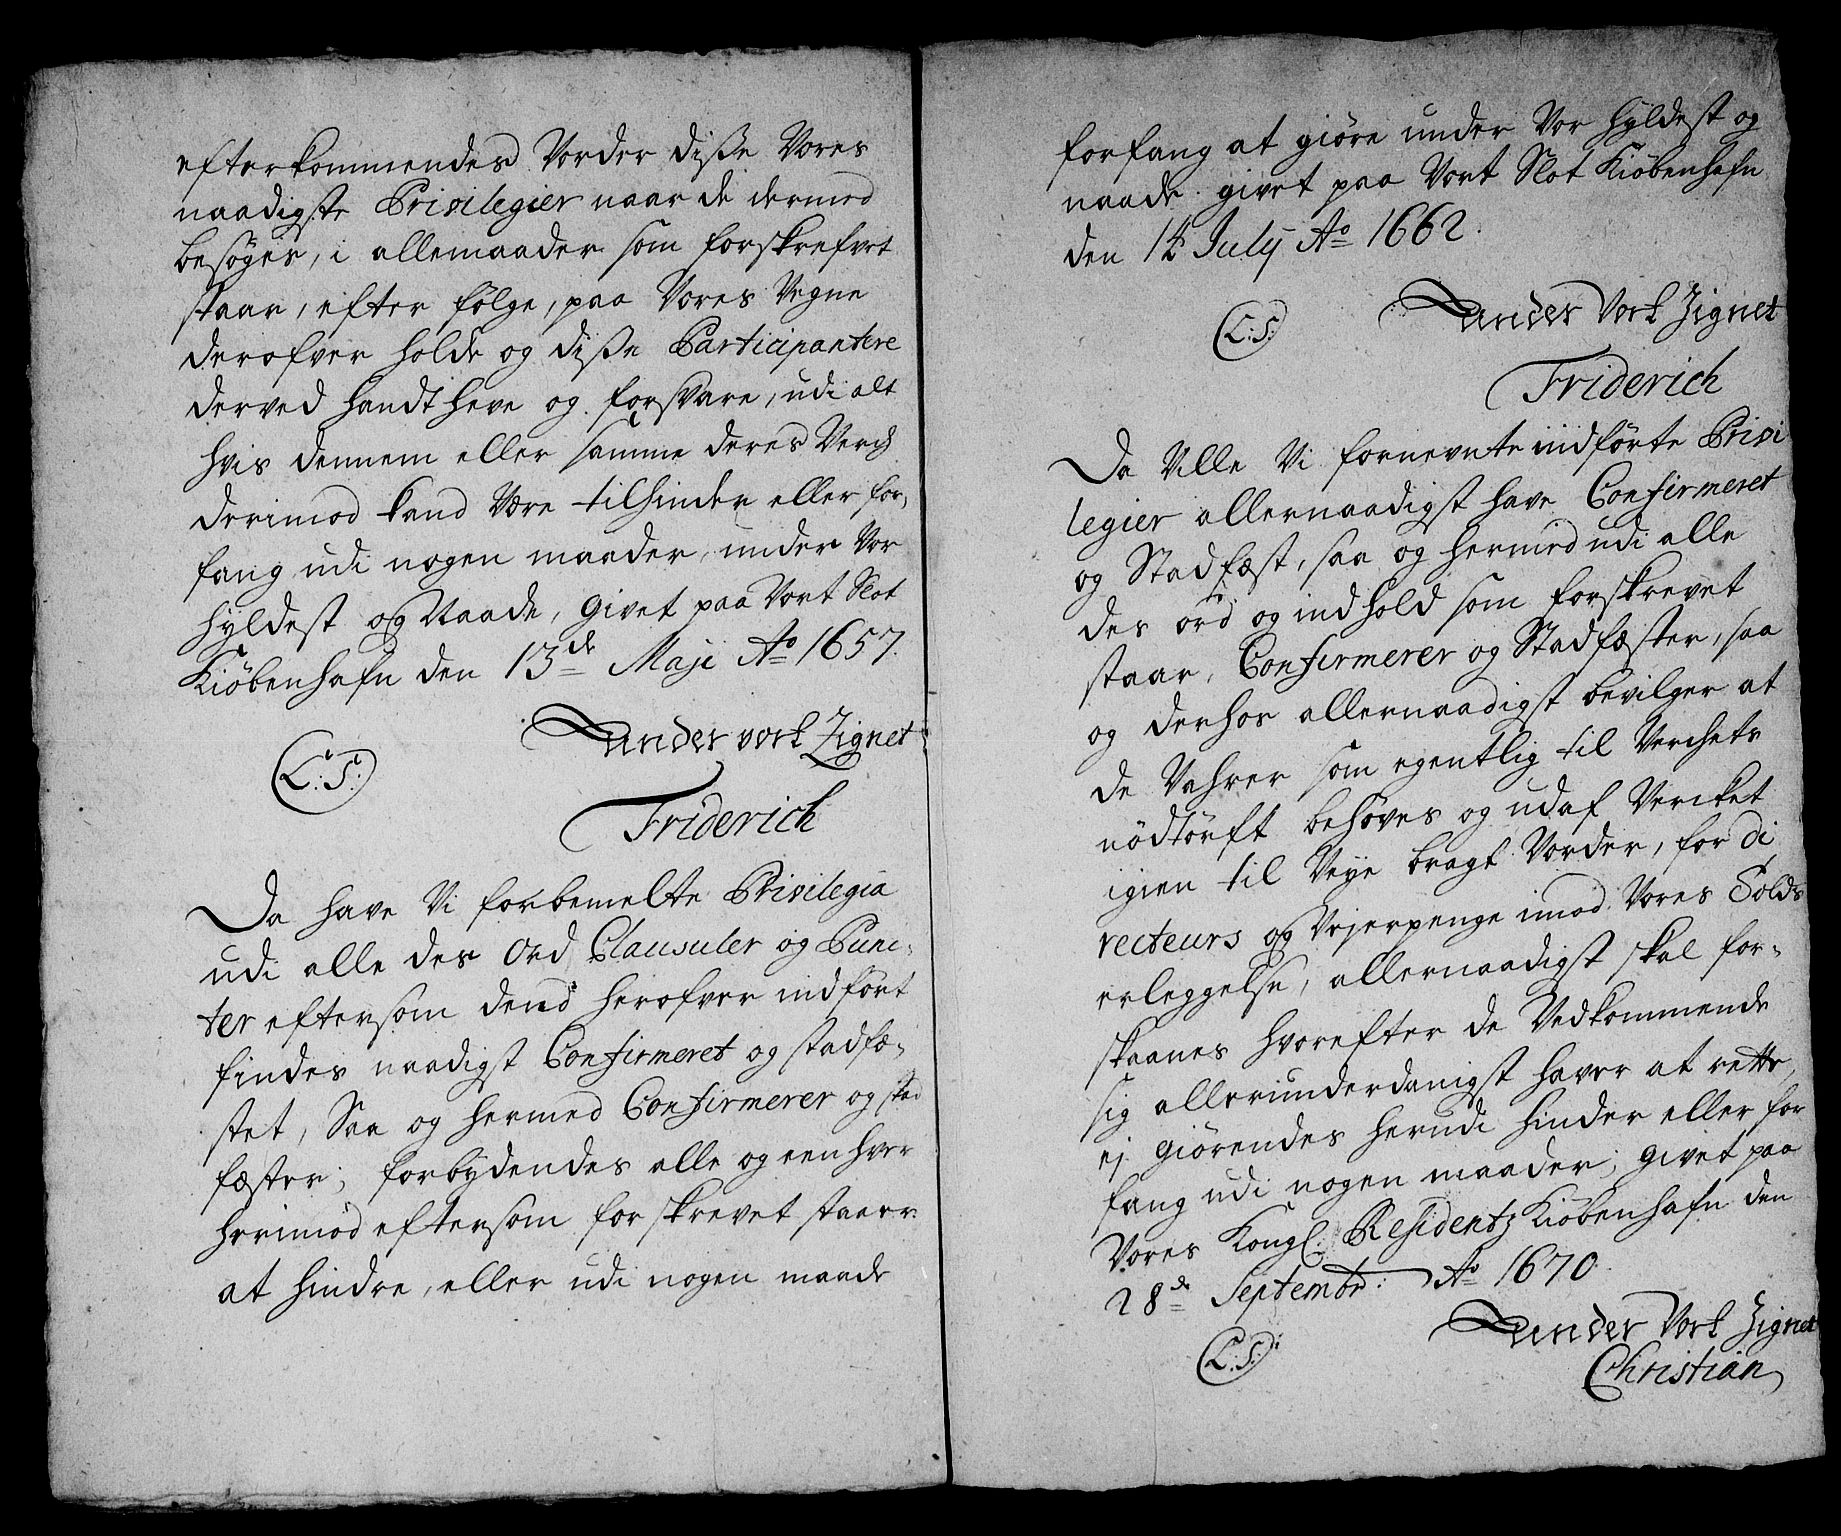 efterkommendes Vorder diſſe Vores
naadigste Privilegier naar de dermed
besøges, i allemaader som forskrefvet
staar, efter følge, paa Vores Vegne
derofver holde og diſſe Participantere
derved handtheve og forsvare, udi alt
hvis dennem eller samme deres Verch
derimod kand Være tilhinder eller for,
fang udi nogen maader, under Vor
hyldest og Naade, Givet paa Vort Slot
Kiøbenhafn den 13de Maji Ao 1657.
Under vort Zignet
L: S:
Friderich
Da have Vi forbemelte Privilegia
udi alle des Ord Clausuler og Punc-
ter eftersom dend herofver indført
findes naadigst Confirmeret og stadfæ-
stet, Saa og hermed Confirmerer og stad
fæster; forbydendes alle og een hver
herimod eftersom forskrevet staaer
at hindre, eller udi nogen maade
forfang at giøre under Vor hyldest og
naade. givet paa Vort Slot Kiøbenhafn
den 14 July Ao 1662.
Under Vort Zignet
L: S:
Friderich
Da Ville Vi fornevnte indførte Privi
legier allernaadigst have Confirmeret
og Stadfæst, saa og hermed udi alle
des ord og indhold som forskrevet
staar, Confirmerer og Stadfæster, saa
og derhos allernaadigst bevilger at
de Vahrer som egentlig til Verchets
nødtørft behøves og udaf Vercket
igien til Veye bragt Vorder, for Di
recteurs og Vejerpenge imod Vores Tolds
erleggelse, allernaadigst skal for-
skaanes hvorefter de Vedkommende
sig allerunderdanigst haver at rette,
ej giørendes herudi hinder eller for
fang udi nogen maader; givet paa
Vores Kongl: Residentz Kiøbenhafn den
28de Septembr: Ao 1670.
Under Vort Zignet
L: S:
Christian